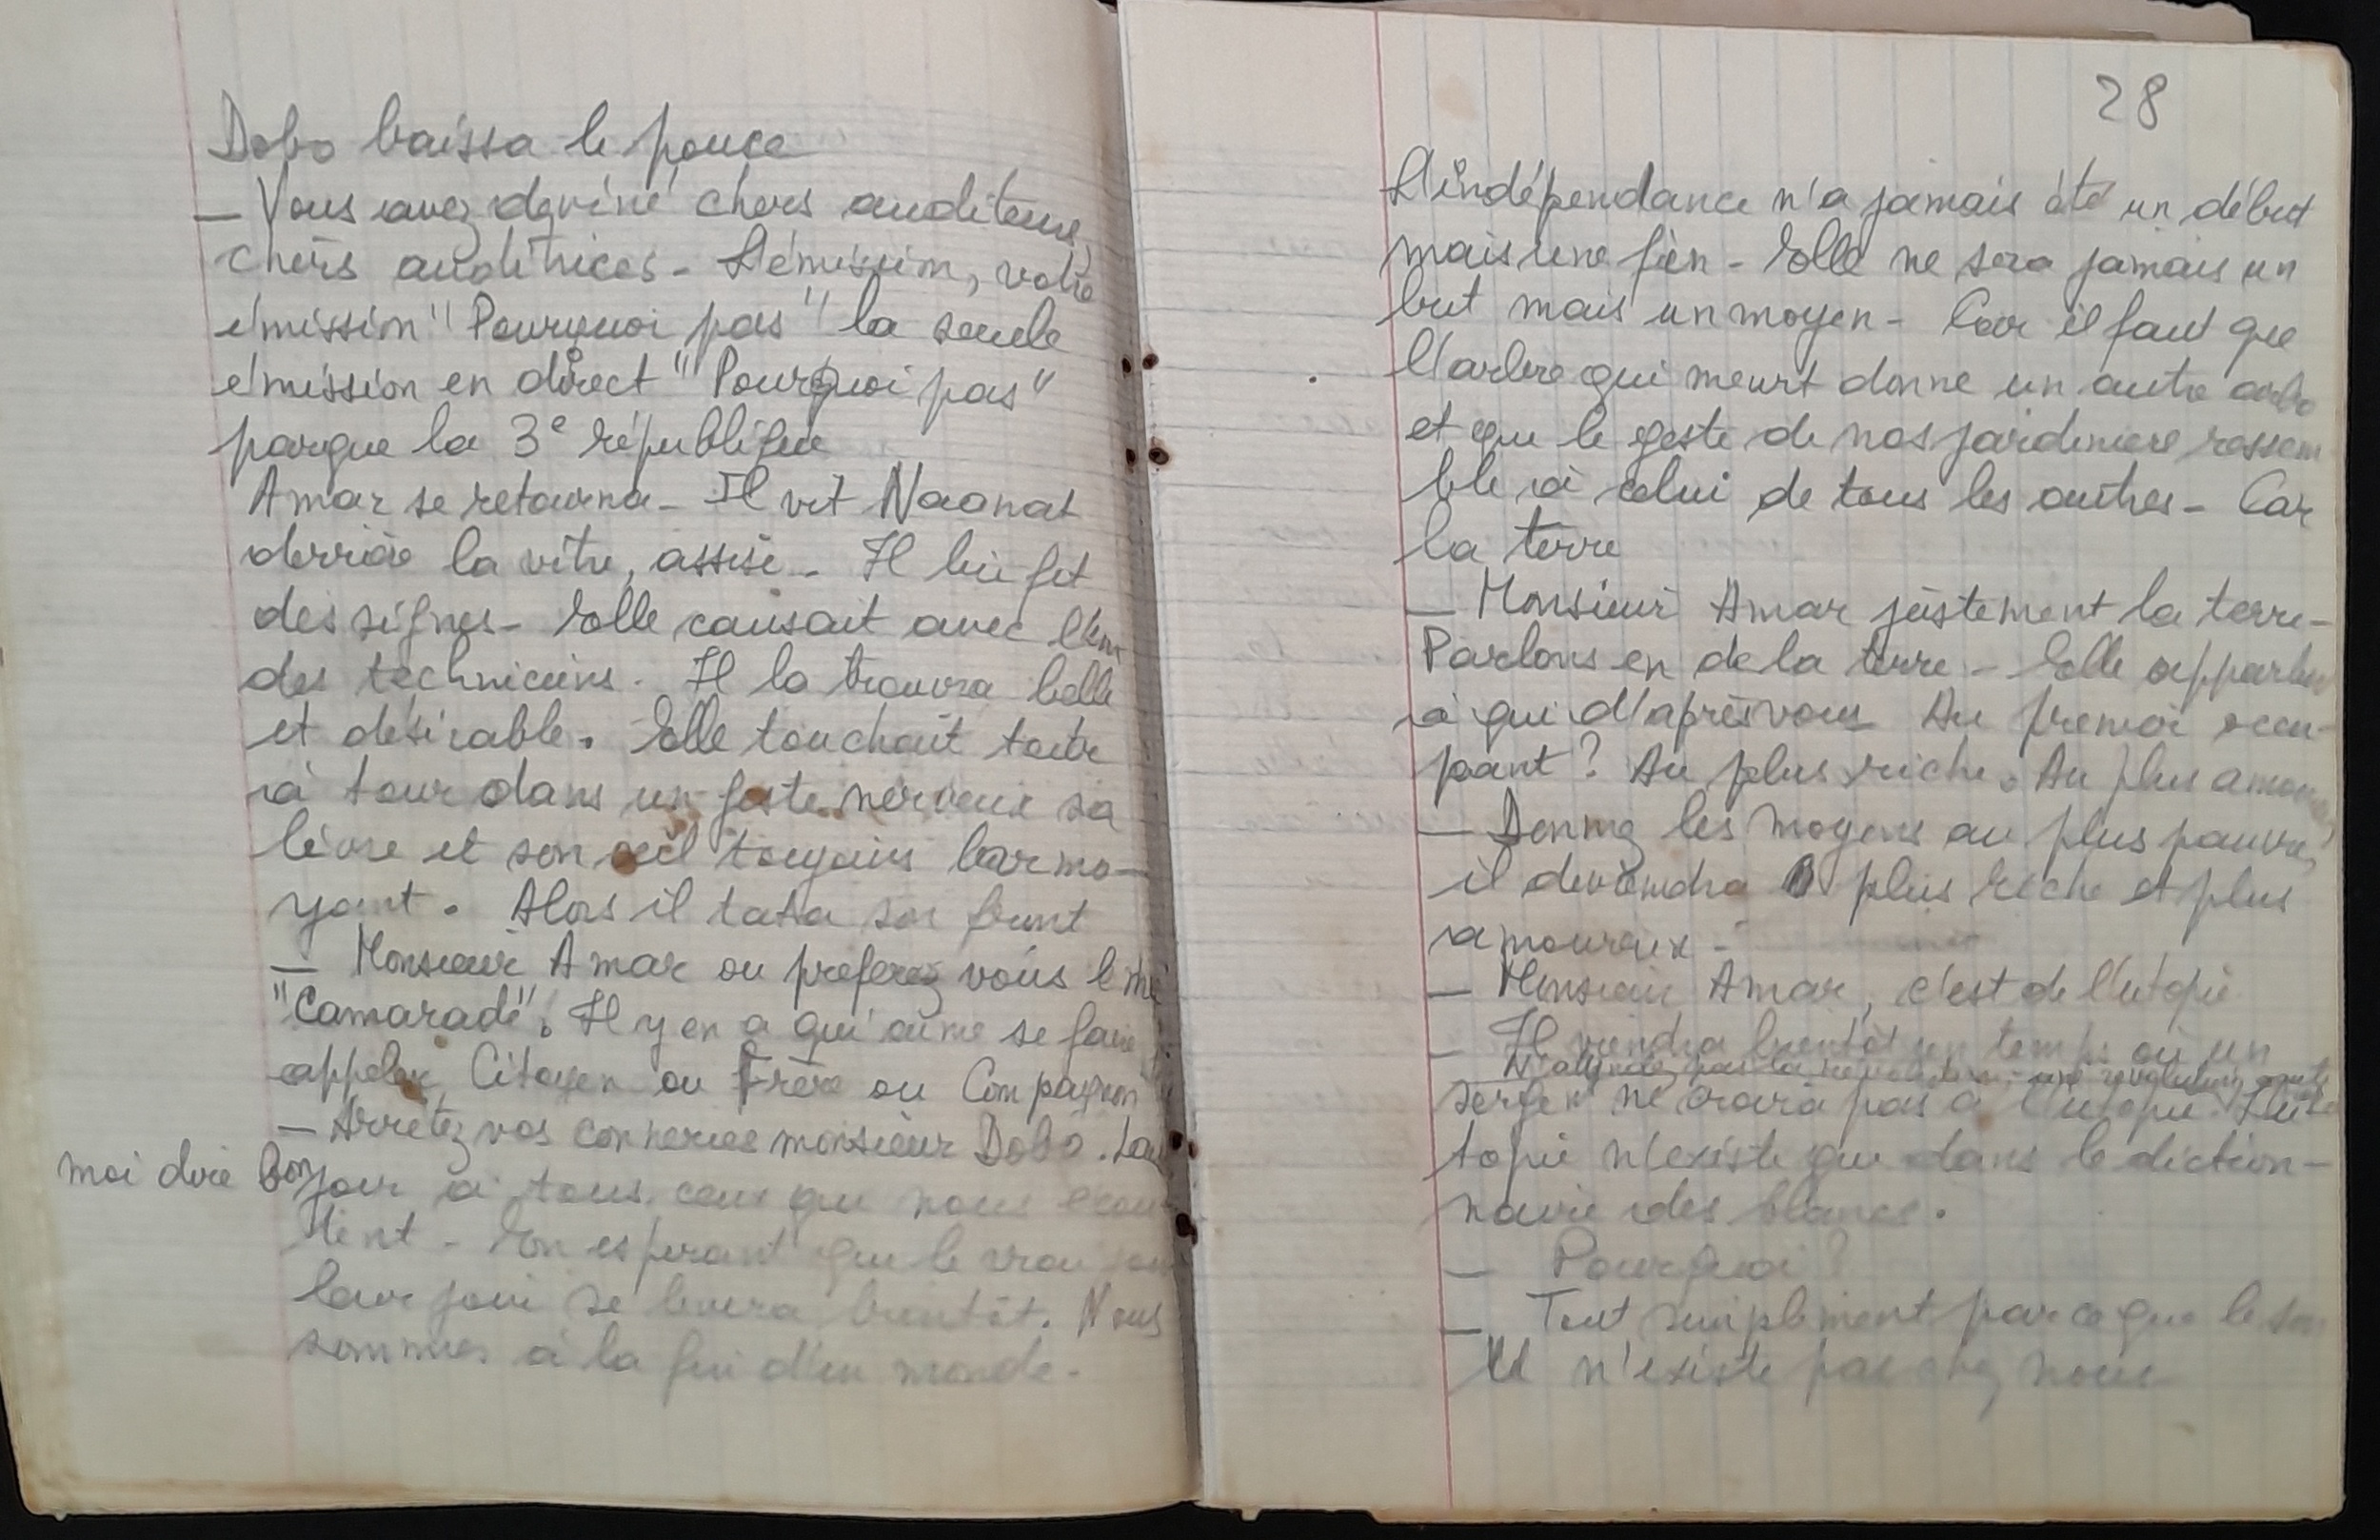 Dobo baissa le pouce
— Vous avez deviné chers auditeurs,
chers auditrices - L'émission, votre
émission "Pourquoi pas" la seule
émission en direct "Pourquoi pas"
parque la 3e république
Amar se retourna - Il vit Naanat
derrière la vitre, assise - Il lui fit
des signes - Elle causait avec l'un
des techniciens. Il la trouva belle
et désirable. Elle touchait tour
à tour dans un geste nerveux sa
lèvre et son œil toujours larmo-
yant. Alors il tata son front
— Monsieur Amar ou preferez vous le mi
"Camarade". Il y en a qui aime se faire
appeler Citoyen ou Frère ou Compagnon
— Arrêtez vos conneries monsieur Dobo.
moi dire bonjour à tous ceux qui nous écou-
tent - En espérant que le vrai
leur jour se levera bientôt. Nous
sommes à la fin d'un monde.
28
L'indépendance n'a jamais été un début
mais une fin - Elle ne sera jamais un
but mais un moyen - Car il faut que
l'arbre qui meurt donne un autre arbre
et que le geste de nos jardiniers ressem
ble à celui de tous les autres - Car
la terre
— Monsieur Amar justement la terre -
Parlons en de la terre - Elle appartient
à qui d'après vous Au premier occu-
pant? Au plus riche. Au plus amoureux
— Donnez les moyens au plus pauvre,
il deviendra plus riche et plus
amoureux -
— Monsieur Amar, c'est de l'utopie
— Il viendra bientôt un temps où un
N'attendez pas la révolution, une révolution
serfen ne croira pas à l'utopie. L'u
topie n'existe que dans le diction-
naire des blancs.
— Pourquoi?
— Tout simplement parce que le
n'existe pas chez nous